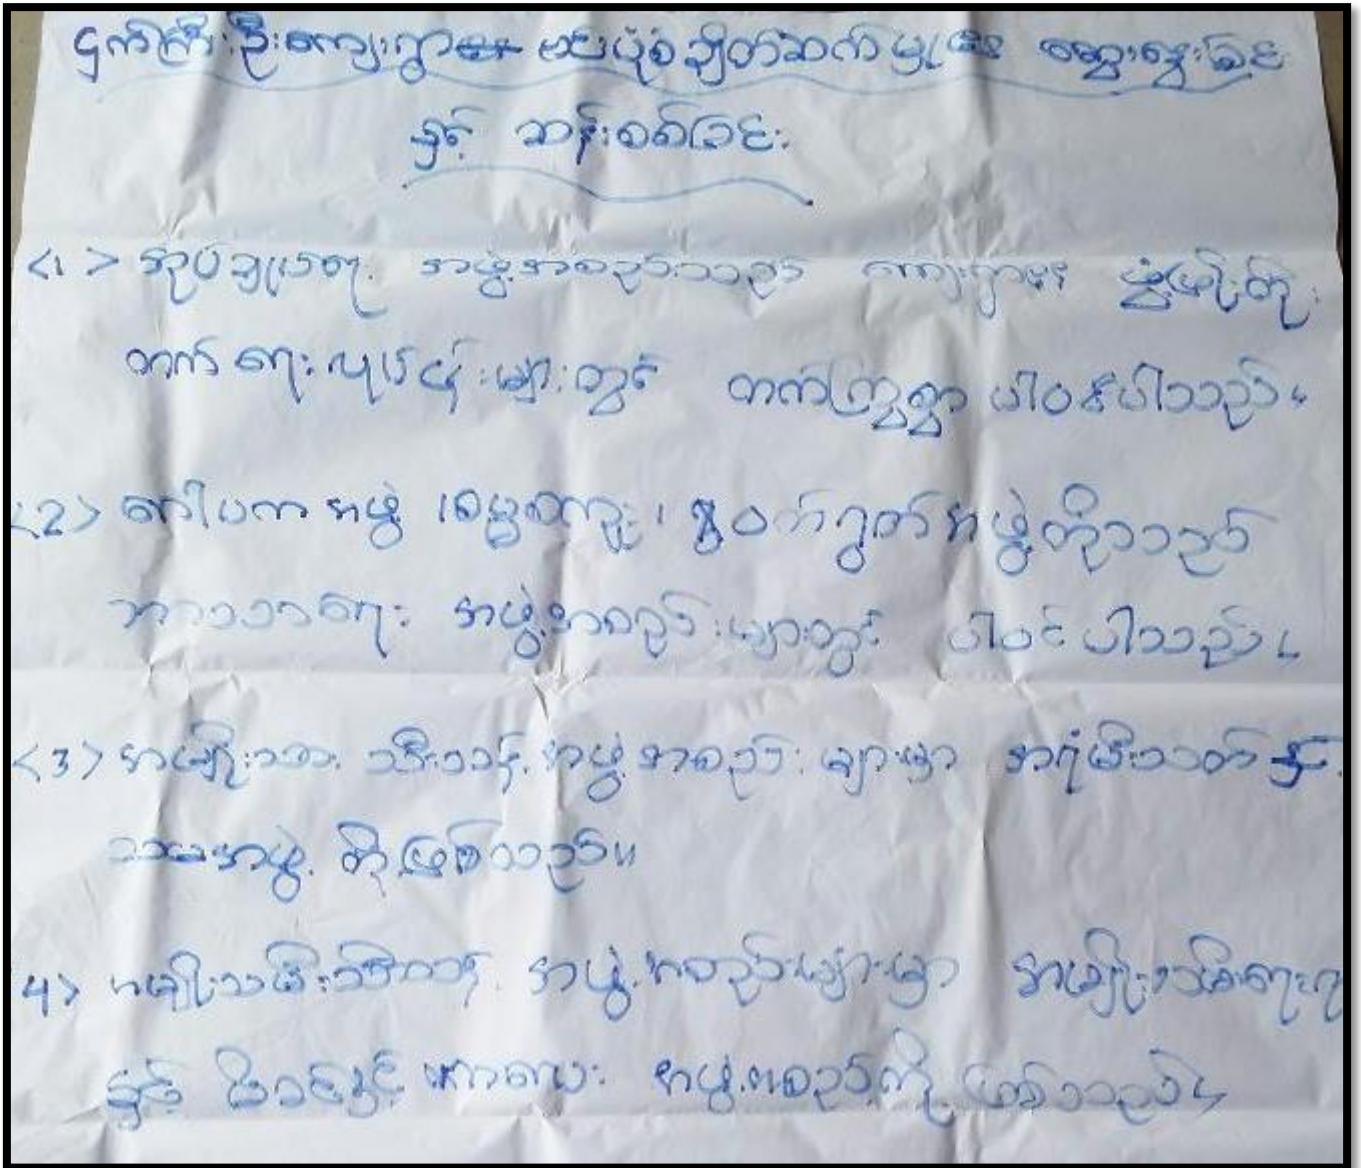 ငှက်ကြီးဦးကျေးရွာ ပုံစံချိတ်ဆက်မှု ဆွေးနွေးခြင်း
နှင့် ဆန်းစစ်ခြင်း
<1> အုပ်ချုပ်ရေး အဖွဲ့အစည်းသည် ကျေးရွာ၏ ဖွံ့ဖြိုးတိုး
တက်ရေးလုပ်ငန်းများတွင် တက်ကြွစွာ ပါဝင်ပါသည်။
<2> ဂေါပကအဖွဲ့၊ ဓမ္မစကူး၊ ရွတ်အဖွဲ့တို့သည်
ဘာသာရေး အဖွဲ့အစည်းများတွင် ပါဝင်ပါသည်။
<3> အမျိုးသား သီးသန့်အဖွဲ့အစည်းများမှာ အရံမီးသတ်နှင့်
အဖွဲ့တို့ဖြစ်သည်။
4> အမျိုးသမီးသီးသန့် အဖွဲ့အစည်းများမှာ အမျိုးသမီးရေးရာ
နှင့် မိခင်နှင့် ကလေး အဖွဲ့အစည်းတို့ ဖြစ်သည်။